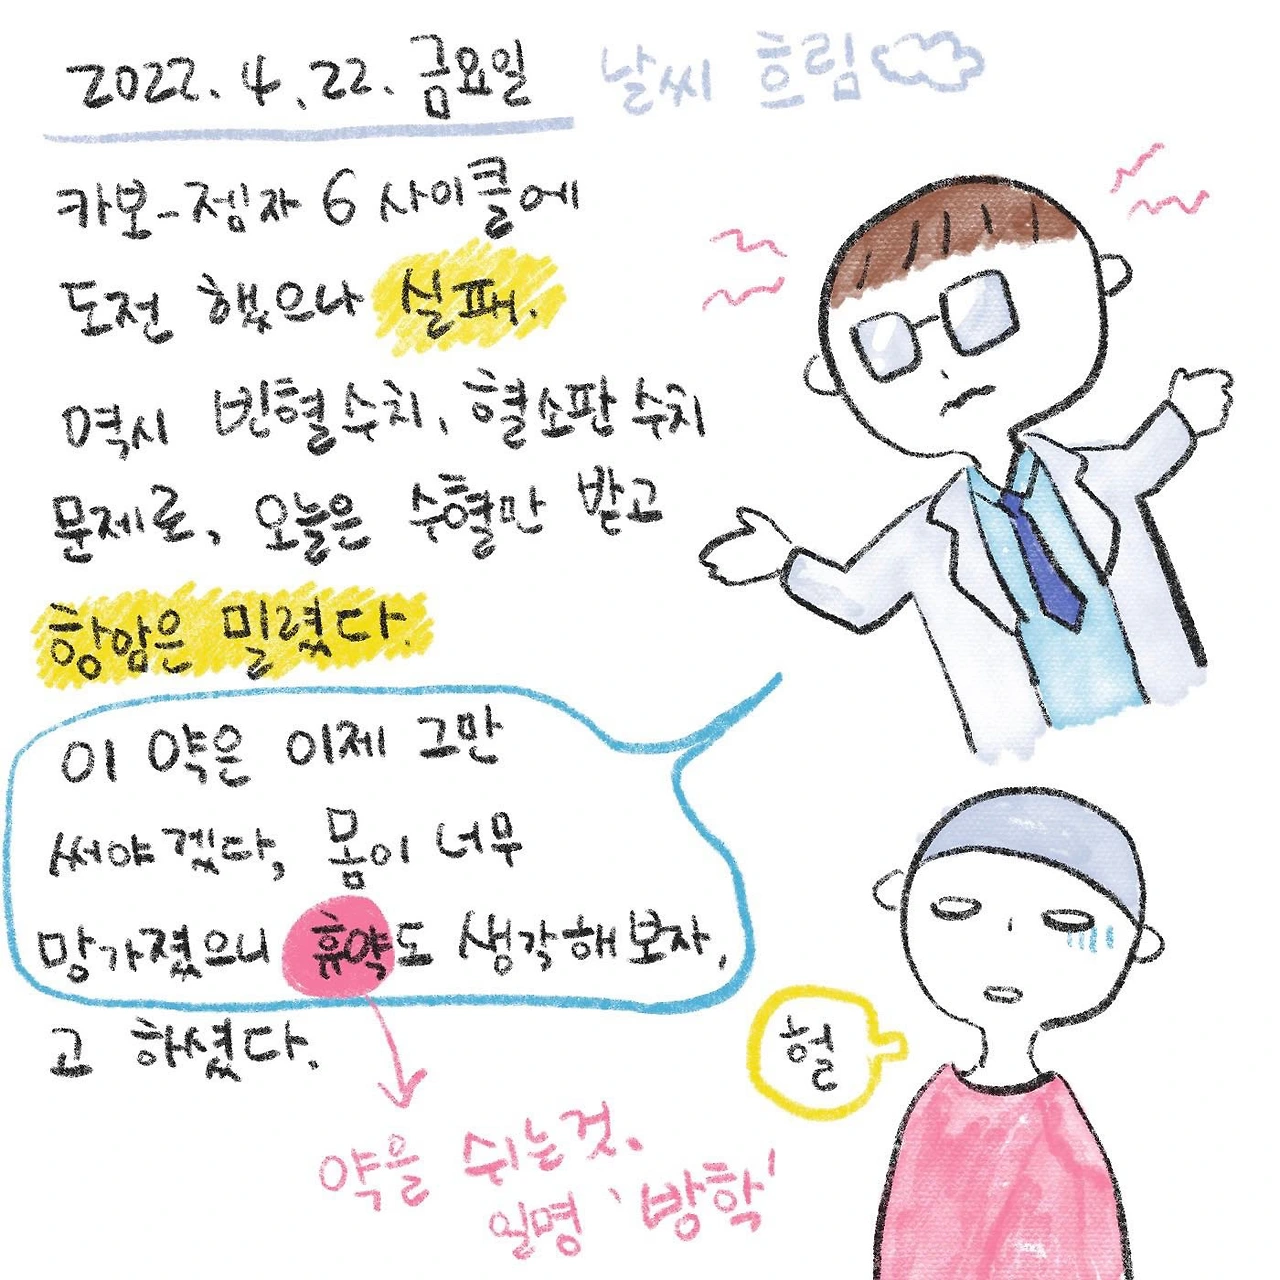 2022. 4. 22. 금요일 날씨 흐림
카보-젬자 6 사이클에
도전 했으나 실패.
역시 빈혈수치, 혈소판 수치
문제로, 오늘은 수혈만 받고
항암은 밀렸다.
이 약은 이제 그만
써야겠다, 몸이 너무
망가졌으니 휴약도 생각해보자,
고 하셨다.
헐
약을 쉬는것.
일명 '방학'